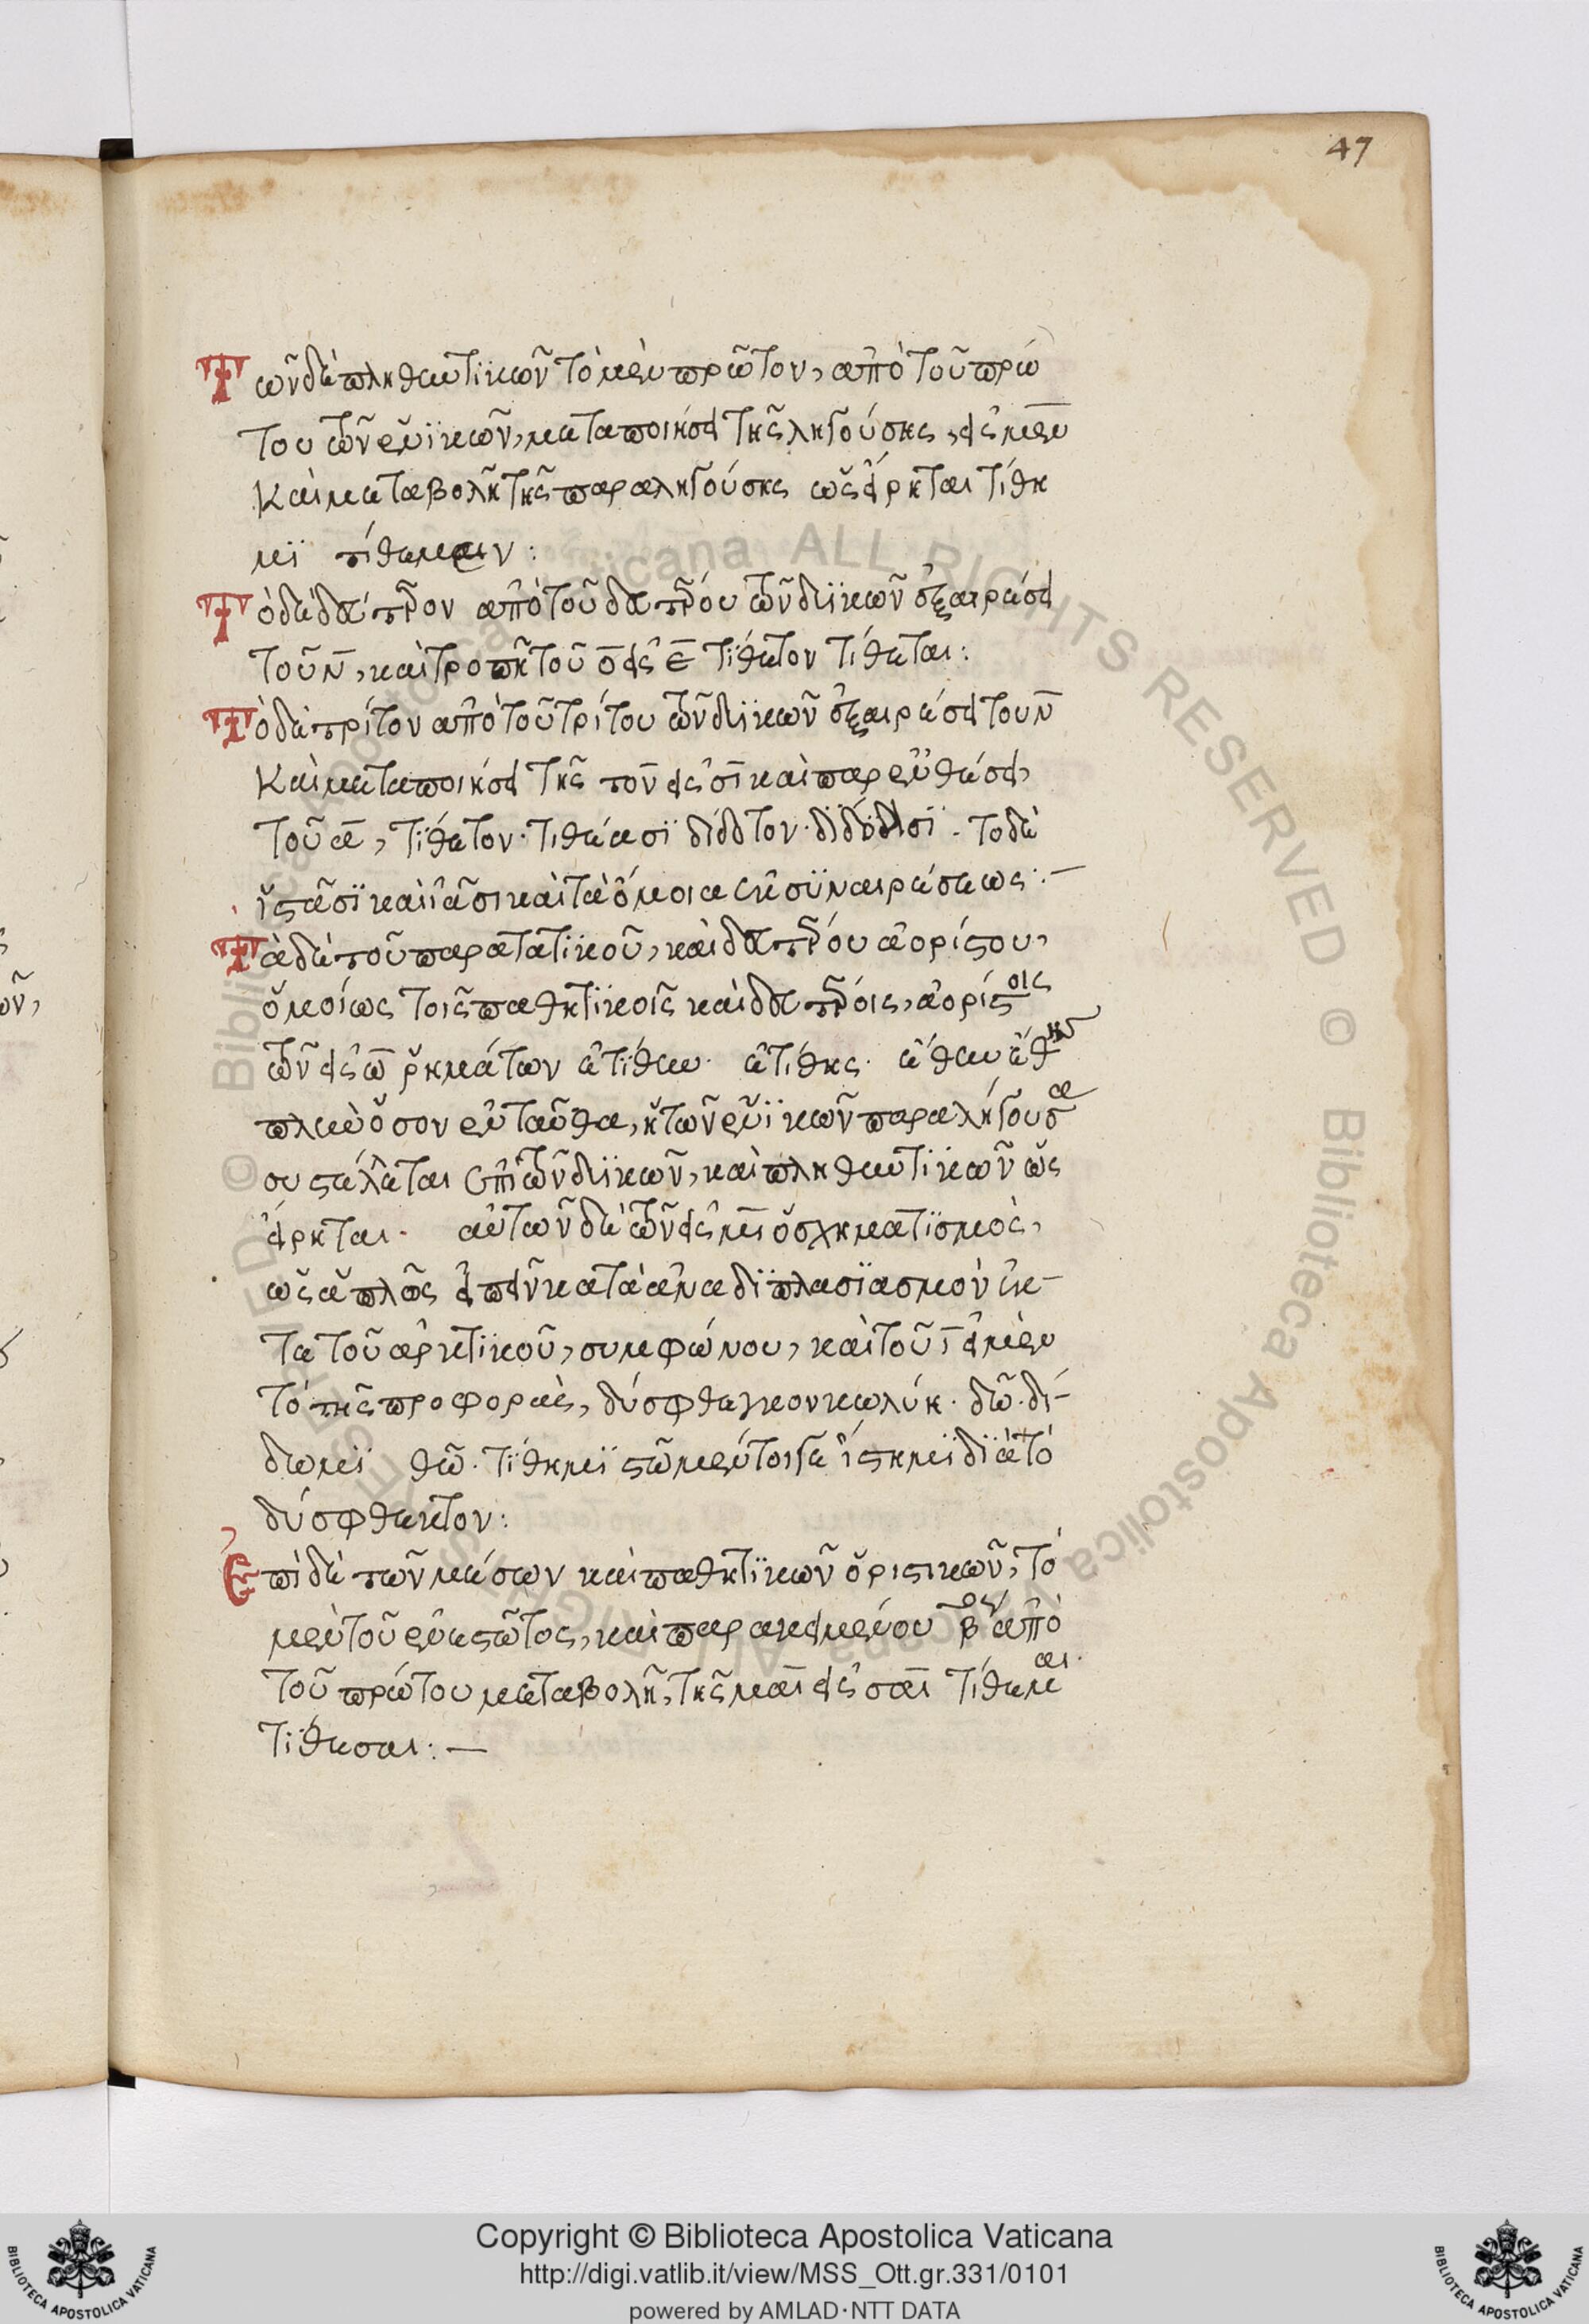 47
Τῶν δὲ πληθυντικῶν τὸ μὲν πρῶτον, ἀπὸ τοῦ πρώ
του τῶν ἑνϊκῶν, μεταποιήσει τῆς ληγούσης, εἰς μεν
Καὶ μεταβολῇ τῆς παραληγούσης ὡς εἴρηται τίθη
μϊ τίθεμεν :
Τὸ δὲ δεύτερον ἀπὸ τοῦ δευτέρου τῶν δυϊκῶν ἐξαιρέσει
τοῦ ν, καὶ τροπῇ τοῦ ο εἰς ε τίθετον τίθεται :
Τὸ δὲ τρίτον ἀπὸ τοῦ τρίτου τῶν δυϊκῶν ἐξαιρέσει τοῦ ν
Καὶ μεταποιήσει τῆς τον εἰς σι καὶ παρενθέσει,
τοῦ α, τίθετον· τιθέασϊ δίδοτον· διδόασϊ. τὸ δὲ
ἵστᾶσϊ καὶ ἱᾶσι καὶ τὰ ὅμοια ἐκ συναιρέσεως :—
Τὰ δὲ τοῦ παρατατικοῦ, καὶ δευτέρου ἀορίστου,
ὁμοίως τοῖς παθητικοῖς καὶ δευτέροις, ἀορίστοις
τῶν εἰς ω ῥημάτων ἐτίθην· ἐτίθης· ἔθην ἔθης
πλὴν ὅσον ἐνταῦθα, ἡ τῶν ἑνϊκῶν παραλήγουσα
συστέλλεται ἐπὶ τῶν δυϊκῶν, καὶ πληθυντικῶν ὡς
εἴρηται· αὐτῶν δὲ τῶν εἰς μι ὁ σχηματισμὸς,
ὡς ἁπλῶς εἰπεῖν κατὰ ἀναδιπλασϊασμὸν ἐκ
τε τοῦ ἀρκτικοῦ, συμφώνου, καὶ τοῦ ι εἰ μὲν
τὸ τῆς προφορᾶς, δύσφθεγκον κωλύῃ· δῶ· δί-
δωμϊ θῶ· τίθημϊ στῶ μέντοιγε ἵστημϊ διὰ τὸ
δύσφθεκτον :
Ἐπὶ δὲ τῶν μέσων καὶ παθητικῶν ὁριστικῶν, τὸ
μὲν τοῦ ἐνεστῶτος, καὶ παρακειμένου βον ἀπὸ
τοῦ πρώτου μεταβολῇ, τῆς μαι εἰς σαι τίθεμαι
τίθεσαι :—
Copyright © Biblioteca Apostolica Vaticana
http://digi.vatlib.it/view/MSS_Ott.gr.331/0101
powered by AMLAD·NTT DATA
BIBLIOTECA APOSTOLICA VATICANA
BIBLIOTECA APOSTOLICA VATICANA